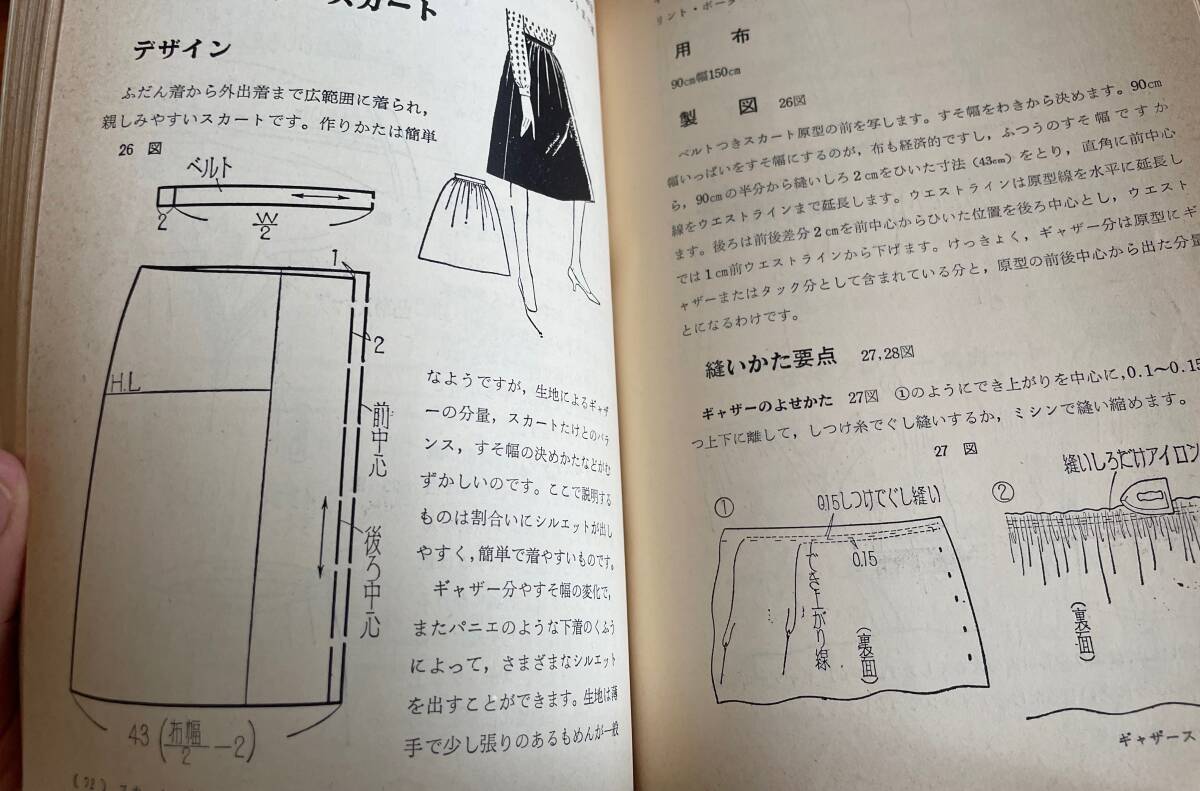 スカート
デザイン
ふだん着から外出着まで広範囲に着られ,
親しみやすいスカートです。作りかたは簡単
26 図
ベルト
2
W/2
1
2
H.L
前中心
後ろ中心
43(布幅/2−2)
なようですが，生地によるギャザ
ーの分量，スカートたけとのバラ
ンス，すそ幅の決めかたなどがむ
ずかしいのです。ここで説明する
ものは割合いにシルエットが出し
やすく，簡単で着やすいものです。
ギャザー分やすそ幅の変化で，
またパニエのような下着のくふう
によって，さまざまなシルエット
を出すことができます。生地は薄
手で少し張りのあるもめんが一般
リント・ボーダ
用布
90cm幅150cm
製図 26図
ベルトつきスカート原型の前を写します。すそ幅をわきから決めます。90cm
幅いっぱいをすそ幅にするのが，布も経済的ですし，ふつうのすそ幅ですか
ら，90cmの半分から縫いしろ2cmをひいた寸法(43cm)をとり，直角に前中心
線をウエストラインまで延長します。ウエストラインは原型線を水平に延長し
ます。後ろは前後差分2cmを前中心からひいた位置を後ろ中心とし，ウエスト
では1cm前ウエストラインから下げます。けっきょく，ギャザー分は原型にギ
ャザーまたはタック分として含まれている分と，原型の前後中心から出た分量
とになるわけです。
縫いかた要点 27,28図
ギャザーのよせかた 27図 ①のようにでき上がりを中心に,0.1〜0.15
つ上下に離して，しつけ糸でぐし縫いするか，ミシンで縫い縮めます。
27 図
①
0.15しつけでぐし縫い
0.15
でき上がり線
(裏面)
②
縫いしろだけアイロン
(裏面)
ギャザース